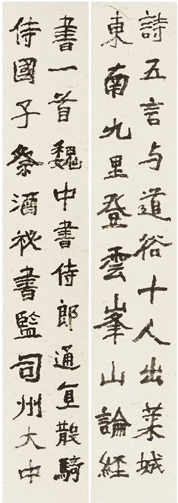 詩五言与道俗十人出萊城
東南九里登雲峯山論經
書一首魏中書侍郎通直散騎
侍國子祭酒祕書監司州大中